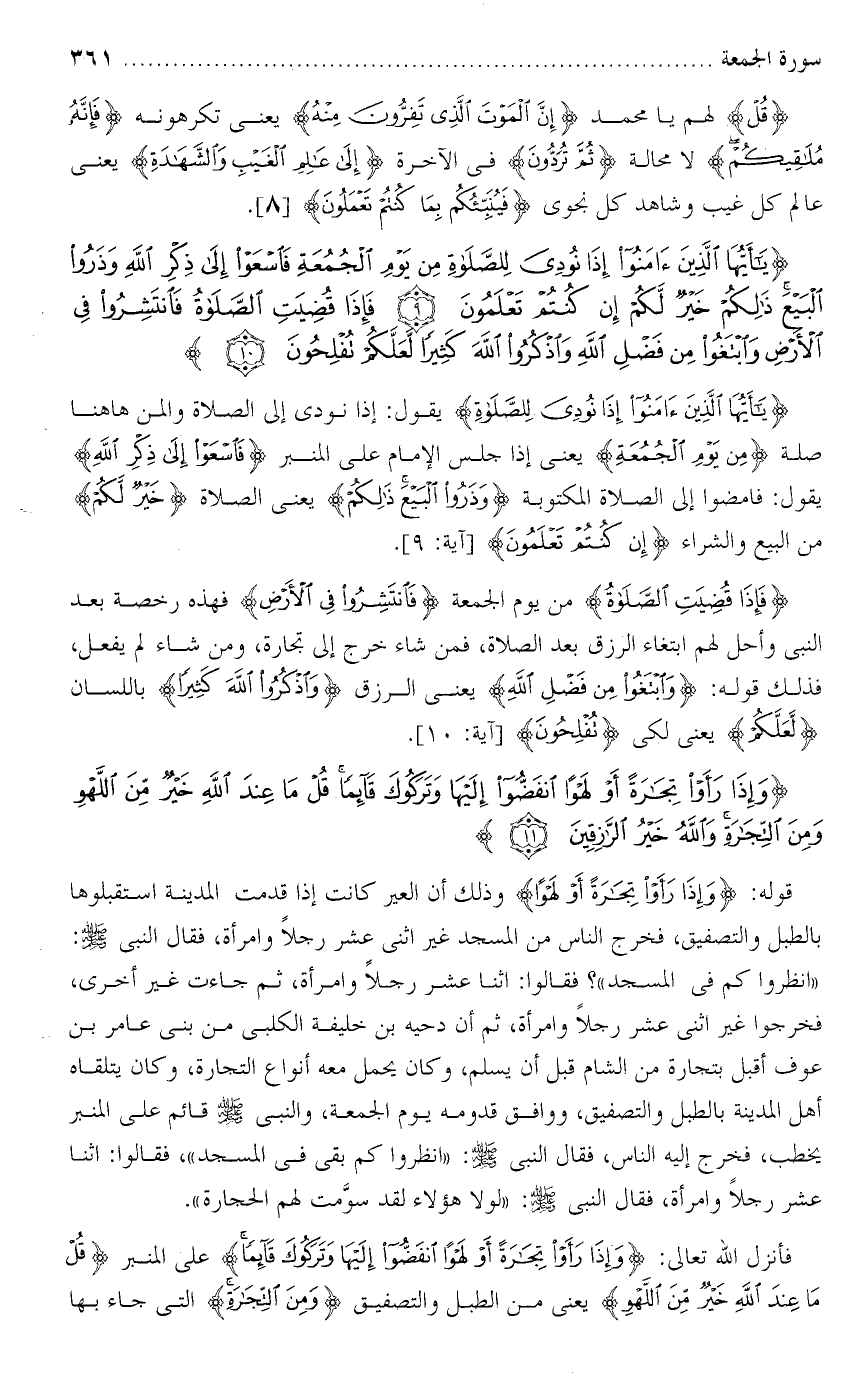 سورة الجمعة ........................................................................ ٣٦١
﴿قُلْ﴾ لهم يا محمد ﴿إِنَّ ٱلْمَوْتَ ٱلَّذِى تَفِرُّونَ مِنْهُ﴾ يعنى تكرهونه ﴿فَإِنَّهُۥ
مُلَٰقِيكُمْۖ﴾ لا محالة ﴿ثُمَّ تُرَدُّونَ﴾ فى الآخرة ﴿إِلَىٰ عَٰلِمِ ٱلْغَيْبِ وَٱلشَّهَٰدَةِ﴾ يعنى
عالم كل غيب وشاهد كل نجوى ﴿فَيُنَبِّئُكُم بِمَا كُنتُمْ تَعْمَلُونَ﴾ [٨].
﴿يَٰٓأَيُّهَا ٱلَّذِينَ ءَامَنُوٓا۟ إِذَا نُودِىَ لِلصَّلَوٰةِ مِن يَوْمِ ٱلْجُمُعَةِ فَٱسْعَوْا۟ إِلَىٰ ذِكْرِ ٱللَّهِ وَذَرُوا۟
ٱلْبَيْعَۚ ذَٰلِكُمْ خَيْرٌ لَّكُمْ إِن كُنتُمْ تَعْلَمُونَ ٩ فَإِذَا قُضِيَتِ ٱلصَّلَوٰةُ فَٱنتَشِرُوا۟ فِى
ٱلْأَرْضِ وَٱبْتَغُوا۟ مِن فَضْلِ ٱللَّهِ وَٱذْكُرُوا۟ ٱللَّهَ كَثِيرًا لَّعَلَّكُمْ تُفْلِحُونَ ١٠﴾
﴿يَٰٓأَيُّهَا ٱلَّذِينَ ءَامَنُوٓا۟ إِذَا نُودِىَ لِلصَّلَوٰةِ﴾ يقول: إذا نودى إلى الصلاة والمن هاهنا
صلة ﴿مِن يَوْمِ ٱلْجُمُعَةِ﴾ يعنى إذا جلس الإمام على المنبر ﴿فَٱسْعَوْا۟ إِلَىٰ ذِكْرِ ٱللَّهِ﴾
يقول: فامضوا إلى الصلاة المكتوبة ﴿وَذَرُوا۟ ٱلْبَيْعَۚ ذَٰلِكُمْ﴾ يعنى الصلاة ﴿خَيْرٌ لَّكُمْ﴾
من البيع والشراء ﴿إِن كُنتُمْ تَعْلَمُونَ﴾ [آية: ٩].
﴿فَإِذَا قُضِيَتِ ٱلصَّلَوٰةُ﴾ من يوم الجمعة ﴿فَٱنتَشِرُوا۟ فِى ٱلْأَرْضِ﴾ فهذه رخصة بعد
النبى وأحل لهم ابتغاء الرزق بعد الصلاة، فمن شاء خرج إلى تجارة، ومن شاء لم يفعل،
فذلك قوله: ﴿وَٱبْتَغُوا۟ مِن فَضْلِ ٱللَّهِ﴾ يعنى الرزق ﴿وَٱذْكُرُوا۟ ٱللَّهَ كَثِيرًا﴾ باللسان
﴿لَّعَلَّكُمْ﴾ يعنى لكى ﴿تُفْلِحُونَ﴾ [آية: ١٠].
﴿وَإِذَا رَأَوْا۟ تِجَٰرَةً أَوْ لَهْوًا ٱنفَضُّوٓا۟ إِلَيْهَا وَتَرَكُوكَ قَآئِمًاۚ قُلْ مَا عِندَ ٱللَّهِ خَيْرٌ مِّنَ ٱللَّهْوِ
وَمِنَ ٱلتِّجَٰرَةِۚ وَٱللَّهُ خَيْرُ ٱلرَّٰزِقِينَ ١١﴾
قوله: ﴿وَإِذَا رَأَوْا۟ تِجَٰرَةً أَوْ لَهْوًا﴾ وذلك أن العير كانت إذا قدمت المدينة استقبلوها
بالطبل والتصفيق، فخرج الناس من المسجد غير اثنى عشر رجلاً وامرأة، فقال النبى ﷺ:
«انظروا كم فى المسجد»؟ فقالوا: اثنا عشر رجلاً وامرأة، ثم جاءت غير أخرى،
فخرجوا غير اثنى عشر رجلاً وامرأة، ثم أن دحيه بن خليفة الكلبى من بنى عامر بن
عوف أقبل بتجارة من الشام قبل أن يسلم، وكان يحمل معه أنواع التجارة، وكان يتلقاه
أهل المدينة بالطبل والتصفيق، ووافق قدومه يوم الجمعة، والنبى ﷺ قائم على المنبر
يخطب، فخرج إليه الناس، فقال النبى ﷺ: «انظروا كم بقى فى المسجد»، فقالوا: اثنا
عشر رجلاً وامرأة، فقال النبى ﷺ: «لولا هؤلاء لقد سوَّمت لهم الحجارة».
فأنزل الله تعالى: ﴿وَإِذَا رَأَوْا۟ تِجَٰرَةً أَوْ لَهْوًا ٱنفَضُّوٓا۟ إِلَيْهَا وَتَرَكُوكَ قَآئِمًاۚ﴾ على المنبر ﴿قُلْ
مَا عِندَ ٱللَّهِ خَيْرٌ مِّنَ ٱللَّهْوِ﴾ يعنى من الطبل والتصفيق ﴿وَمِنَ ٱلتِّجَٰرَةِۚ﴾ التى جاء بها